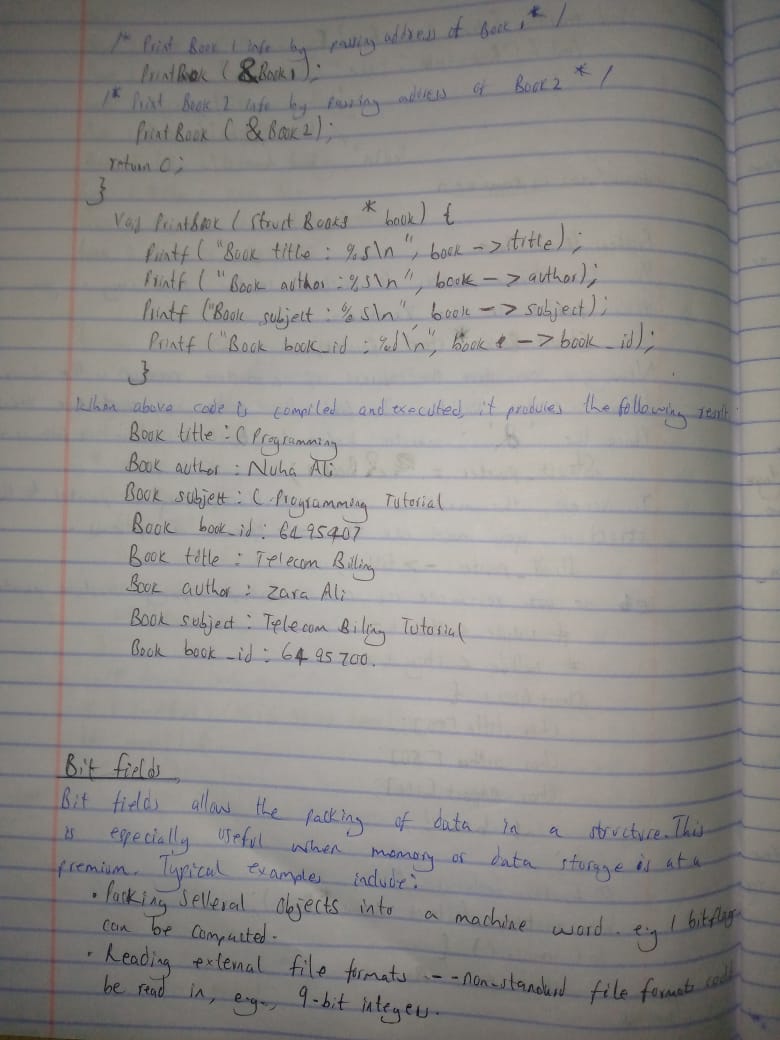 /* Print Book 1 info by passing address of Book1 */
PrintBook ( &Book1 );
/* Print Book 2 info by passing address of Book2 */
Print Book ( & Book 2 );
return 0;
}
Void PrintBook ( Struct Books * book ) {
Printf ( "Book title : %s\n", book -> title );
Printf ( "Book author : %s\n", book -> author );
Printf ("Book subject : %s\n" book -> subject );
Printf ( "Book book_id : %d\n", book -> book_id );
}
When above code is compiled and executed, it produces the following result
Book title : C Programming
Book author : Nuha Ali
Book subject : C Programming Tutorial
Book book_id : 6495407
Book title : Telecom Billing
Book author : Zara Ali
Book subject : Telecom Biling Tutorial
Book book_id : 6495700.
Bit fields
Bit fields allow the packing of data in a structure. This
is especially useful when memory or data storage is at a
premium. Typical examples include:
• Packing several objects into a machine word. e.g 1 bit flag
can be compacted.
• Reading external file formats -- non-standard file formats could
be read in, e.g., 9-bit integers.